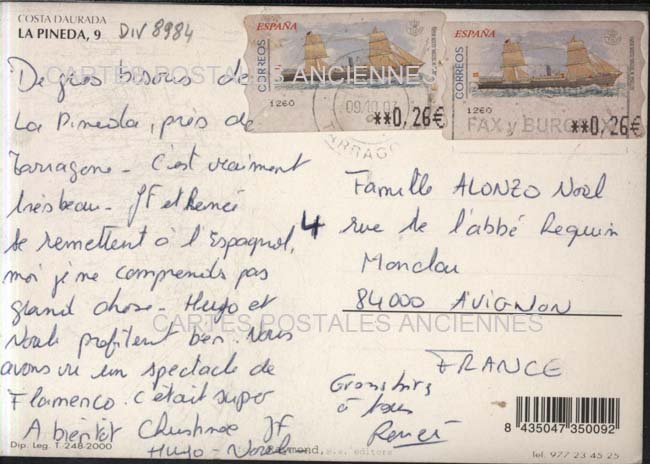 COSTA DAURADA
LA PINEDA, 9 DIV 8984
ESPAÑA
CORREOS
1260
**0,26€
ESPAÑA
CORREOS
1260
**0,26€
09.10.03
TARRAGO
FAX y BURO
CARTES POSTALES ANCIENNES
De gros bisous de
La Pineda, près de
Tarragone - C'est vraiment
très beau - JF et Renée
se remettent à l'Espagnol,
moi je ne comprends pas
grand chose - Hugo et
profitent bien. Nous
avons vu un spectacle de
Flamenco c'était super
A bientôt Christine JF
Hugo -
Famille ALONZO Noël
4 rue de l'abbé Requin
Monclar
84000 AVIGNON
FRANCE
CARTES POSTALES ANCIENNES
Gros
à tous
Renée
Dip. Leg. T. 248-2000
8 435047 350092
Tel. 977 23 45 25